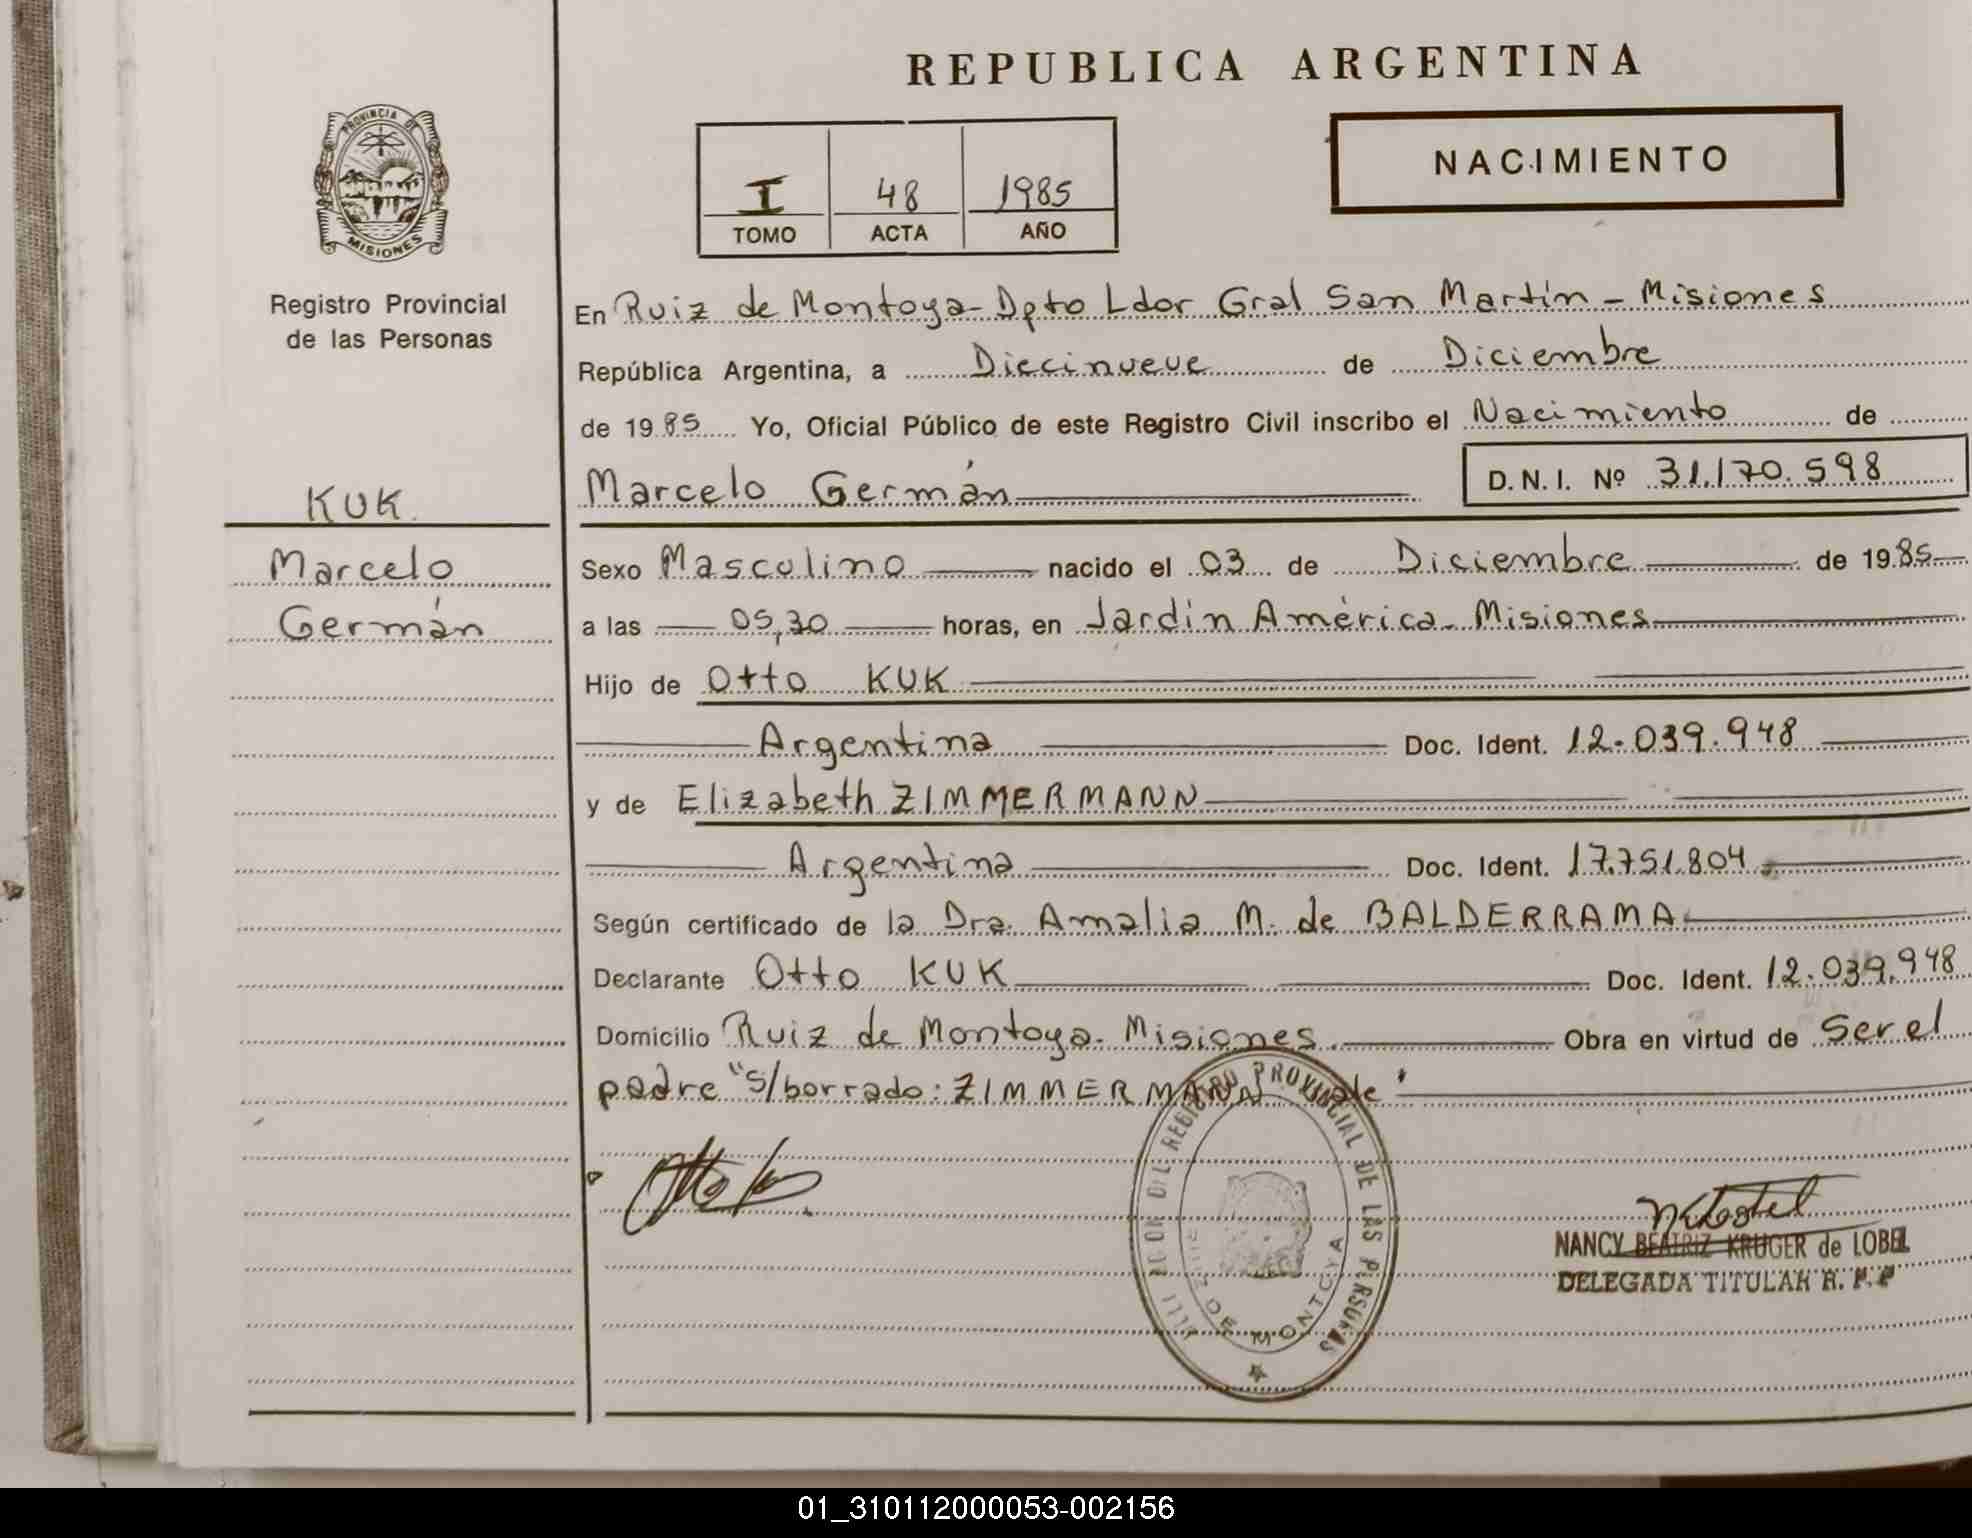 REPUBLICA ARGENTINA
PROVINCIA DE
MISIONES
Registro Provincial
de las Personas
I 48 1985
TOMO ACTA AÑO
NACIMIENTO
En Ruiz de Montoya - Dpto Ldor Gral San Martín - Misiones
República Argentina, a Diecinueve de Diciembre
de 1985 Yo, Oficial Público de este Registro Civil inscribo el Nacimiento de
Marcelo Germán D.N.I. Nº 31.170.598
KUK
Marcelo
Germán
Sexo Masculino nacido el 03 de Diciembre de 1985
a las 05,30 horas, en Jardín América - Misiones
Hijo de Otto KUK
Argentina Doc. Ident. 12.039.948
y de Elizabeth ZIMMERMANN
Argentina Doc. Ident. 17.751.804
Según certificado de la Dra. Amalia M. de BALDERRAMA
Declarante Otto KUK Doc. Ident. 12.039.948
Domicilio Ruiz de Montoya - Misiones. Obra en virtud de Ser el
padre "S/borrado: ZIMMERMANN Vale"
REGISTRO PROVINCIAL DE LAS PERSONAS
RUIZ DE MONTOYA
NANCY BEATRIZ KRUGER de LOBEL
DELEGADA TITULAR R. P. P
01_310112000053-002156